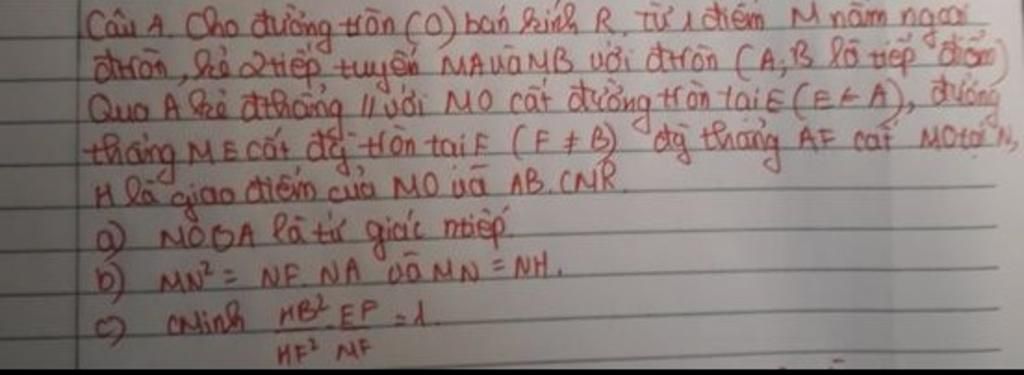 Câu 4. Cho đường tròn (O) bán kính R. Từ 1 điểm M nằm ngoài
đtròn, kẻ 2 tiếp tuyến MA và MB với đtròn (A, B là tiếp điểm)
Qua A kẻ đthẳng // với MO cắt đường tròn tại E (E ≠ A), đường
thẳng ME cắt đg tròn tại F (F ≠ B) đg thẳng AF cắt MO tại N,
H là giao điểm của MO và AB. CMR
a) MOBA là tứ giác ntiếp.
b) MN² = NF. NA và MN = NH.
c) CMinh HB²/HF² . EF/MF = 1.